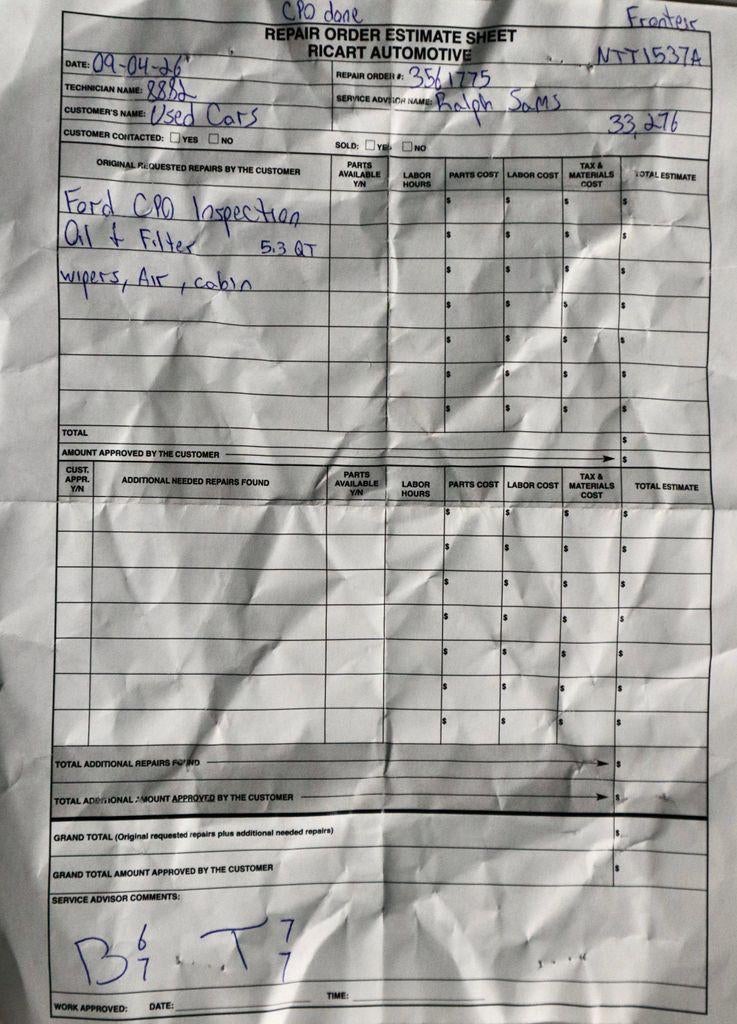 CPO done
Frontier
REPAIR ORDER ESTIMATE SHEET
RICART AUTOMOTIVE
NTT1537A
DATE: 09-04-26
REPAIR ORDER #: 3561775
TECHNICIAN NAME: 8882
SERVICE ADVISOR NAME: Ralph Sams
CUSTOMER'S NAME: Used Cars
33,276
CUSTOMER CONTACTED: YES NO
SOLD: YES NO
ORIGINAL REQUESTED REPAIRS BY THE CUSTOMER PARTS AVAILABLE Y/N LABOR HOURS PARTS COST LABOR COST TAX & MATERIALS COST TOTAL ESTIMATE
Ford CPO Inspection $ $ $ $
Oil + Filter 5.3 QT $ $ $ $
wipers, Air, cabin $ $ $ $
$ $ $ $
$ $ $ $
$ $ $ $
$ $ $ $
TOTAL $
AMOUNT APPROVED BY THE CUSTOMER $
CUST. APPR. Y/N ADDITIONAL NEEDED REPAIRS FOUND PARTS AVAILABLE Y/N LABOR HOURS PARTS COST LABOR COST TAX & MATERIALS COST TOTAL ESTIMATE
$ $ $ $
$ $ $ $
$ $ $ $
$ $ $ $
$ $ $ $
$ $ $ $
$ $ $ $
TOTAL ADDITIONAL REPAIRS FOUND $
TOTAL ADDITIONAL AMOUNT APPROVED BY THE CUSTOMER $
GRAND TOTAL (Original requested repairs plus additional needed repairs) $
GRAND TOTAL AMOUNT APPROVED BY THE CUSTOMER $
SERVICE ADVISOR COMMENTS:
B 6 7 T 7 7
WORK APPROVED: DATE: TIME: